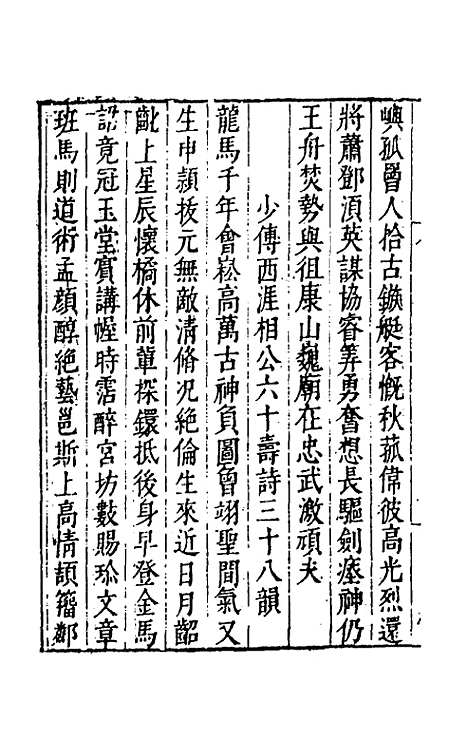 嶼孤曾人拾古鏃艇客慨秋菰偉彼高光烈還
將蕭鄧須英謀協睿筭勇奮想長驅劍瘞神仍
王舟焚勢與徂康山巍廟在忠武激頑夫
少傅西涯相公六十壽詩三十八韻
龍馬千年會崧高萬古神負圖曾翊聖間氣又
生申頴㧞元無敵清脩况絶倫生來近日月齠
齔上星辰懷橘休前輩探鐶抵後身早登金馬
詔竟冠玉堂賓講幄時霑醉宮坊數賜珎文章
班馬則道術孟顔醇絶藝邕斯上高情頡籀鄰